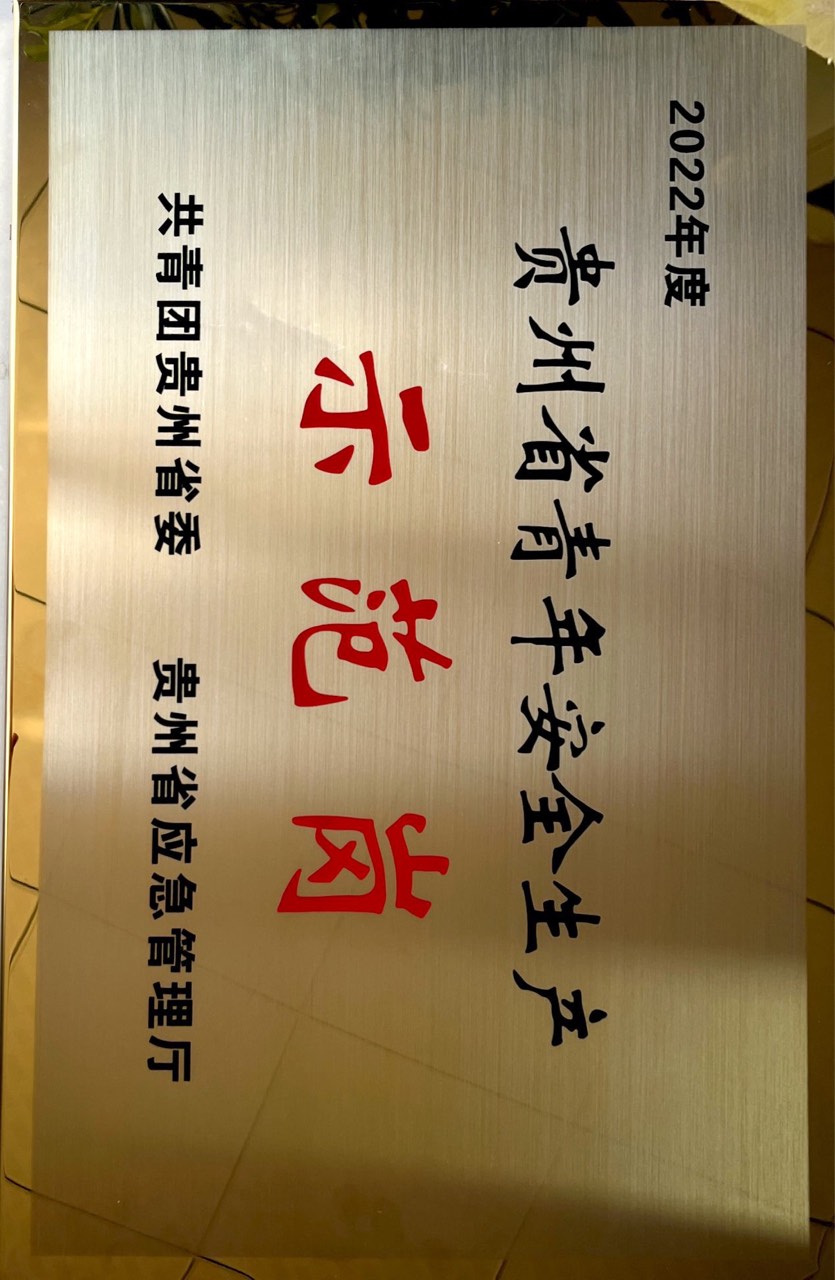 2022年度
贵州省青年安全生产
示范岗
共青团贵州省委 贵州省应急管理厅